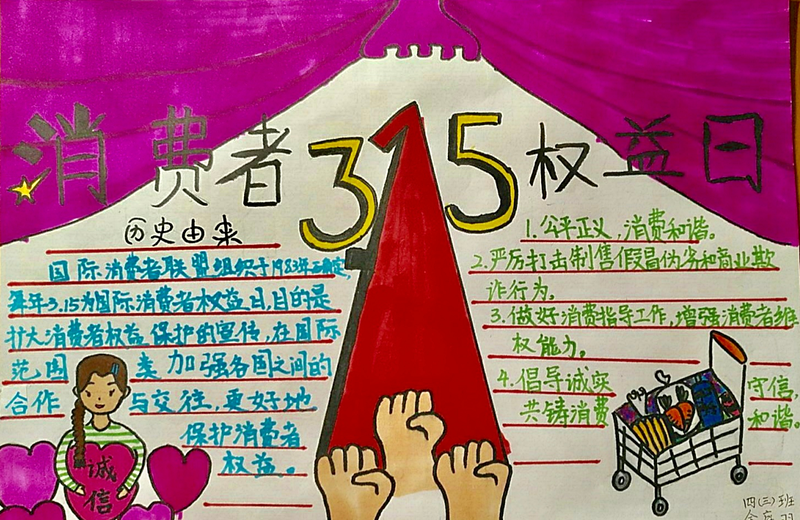 消费者315权益日
历史由来
国际消费者联盟组织于1983年确定,
每年3.15为国际消费者权益日,目的是
扩大消费者权益保护的宣传,在国际
范围 类加强各国之间的
合作 与交往,更好地
保护消费者
权益。
诚
信
1.公平正义,消费和谐。
2.严厉打击制售假冒伪劣和商业欺
诈行为。
3.做好消费指导工作,增强消费者维
权能力。
4.倡导诚实 守信,
共铸消费 和谐。
四(三)班